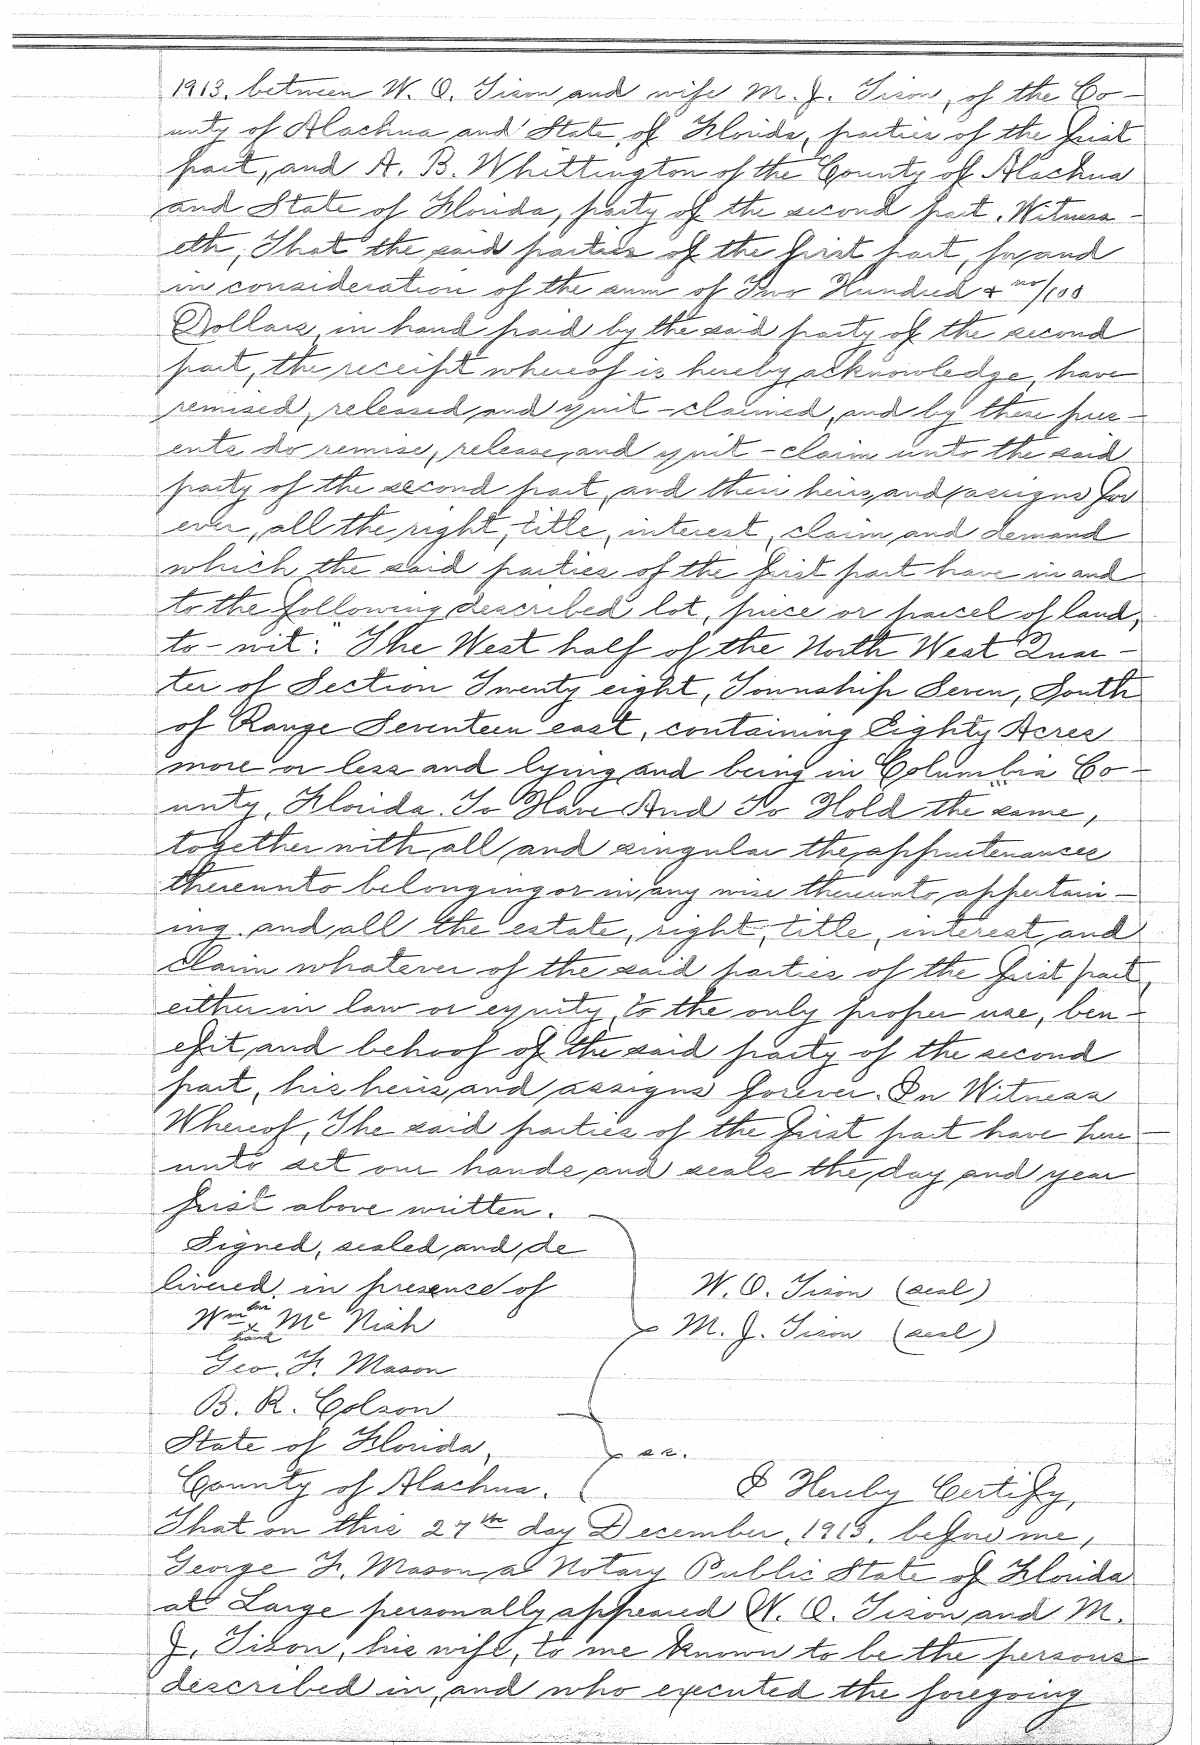 1913. between W. O. Tison and wife M. J. Tison, of the Co-
unty of Alachua and State of Florida, parties of the first
part, and A. B. Whittington of the County of Alachua
and State of Florida, party of the second part. Witness-
eth, That the said parties of the first part, for and
in consideration of the sum of Two Hundred & no/100
Dollars, in hand paid by the said party of the second
part, the receipt whereof is hereby acknowledge, have
remised, released and quit-claimed, and by these pres-
ents do remise, release, and quit-claim unto the said
party of the second part, and their heirs and assigns for
ever, all the right, title, interest, claim and demand
which the said parties of the first part have in and
to the following described lot, piece or parcel of land,
to-wit: "The West half of the North West Quar-
ter of Section Twenty eight, Township Seven, South
of Range Seventeen east, containing Eighty Acres
more or less and lying and being in Columbia Co-
unty, Florida." To Have And To Hold the same,
together with all and singular the appurtenances
thereunto belonging or in any wise thereunto appertain-
ing. and all the estate, right, title, interest and
claim whatever of the said parties of the first part,
either in law or equity, to the only proper use, ben-
efit and behoof of the said party of the second
part, his heirs and assigns forever. In Witness
Whereof, The said parties of the first part have here-
unto set our hands and seals the day and year
first above written.
Signed, sealed and de
livered in presence of W. O. Tison (seal)
Wm his x hand Mc Nish M. J. Tison (seal)
Geo. F. Mason
B. R. Colson
State of Florida, ss.
County of Alachua. I Hereby Certify,
That on this 27th day December, 1913. before me,
George F. Mason a Notary Public State of Florida
at Large personally appeared W. O. Tison and M.
J. Tison, his wife, to me known to be the persons
described in, and who executed the foregoing